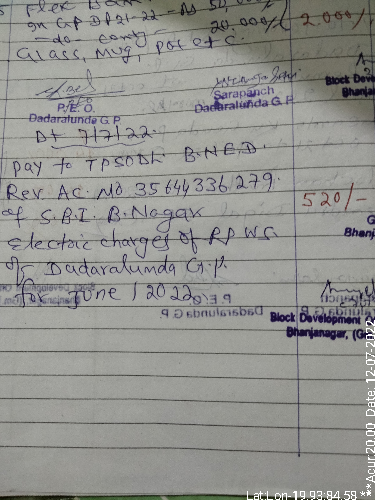 in GP DP 21-22 - Rs 50,000/-
-do- conty - 20.000/- 2.000/-
Glass, Mug, pot etc.
P.E.O.
Dadaralunda G.P
Sarapanch
Dadaralunda G.P.
Block Dev
Bhanja
Dt 7/7/22.
pay to TPSODL B.N.E.D.
Rev. Ac. No. 35644336279.
of S.B.I. B.Nagar 520/-
Electric charges of RPWS
of Dadaralunda G.P.
Bhanj
for June / 2022
P.E.O
Dadaralunda G.P
Block Development O
Bhanjanagar, (G
Lat Lon-19.93:84.58 ***Acur 20.00, Date: 12-07-2022